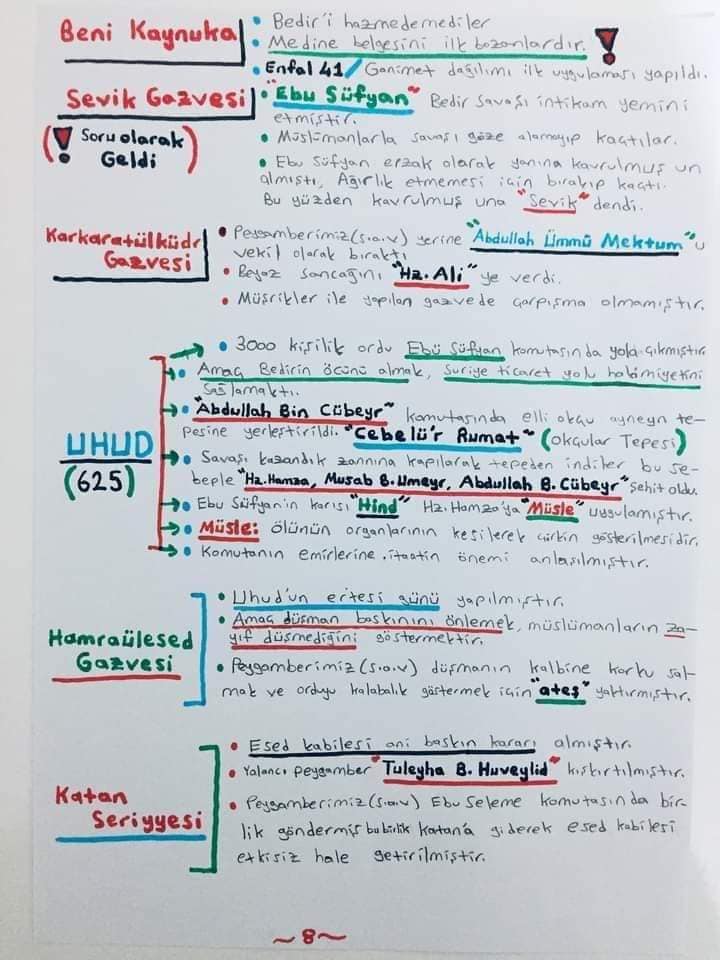 Beni Kaynuka
• Bedir'i hazmedemediler
• Medine belgesini ilk bozanlardır. !
• Enfal 41/ Ganimet dağılımı ilk uygulaması yapıldı.
Sevik Gazvesi
(! Soru olarak Geldi)
• "Ebu Süfyan" Bedir Savaşı intikam yemini
etmiştir.
• Müslümanlarla savaşı göze alamayıp kaçtılar.
• Ebu Süfyan erzak olarak yanına kavrulmuş un
almıştı, Ağırlık etmemesi için bırakıp kaçtı.
Bu yüzden kavrulmuş una "Sevik" dendi.
Karkaratülküdr
Gazvesi
• Peygamberimiz(s.a.v) yerine "Abdullah Ümmü Mektum"u
vekil olarak bıraktı
• Beyaz sancağını "Hz. Ali"ye verdi.
• Müşrikler ile yapılan gazvede çarpışma olmamıştır.
UHUD
(625)
• 3000 kişilik ordu Ebü Süfyan komutasında yola çıkmıştır.
• Amaç Bedirin öcünü almak, Suriye ticaret yolu hakimiyetini
sağlamaktı.
• "Abdullah Bin Cübeyr" komutasında elli okçu ayneyn te-
pesine yerleştirildi. "Cebelü'r Rumat" (Okçular Tepesi)
• Savaşı kazandık zannına kapılarak tepeden indiler bu se-
beple "Hz. Hamza, Musab B. Umeyr, Abdullah B. Cübeyr" şehit oldu.
• Ebu Süfyan'ın karısı "Hind" Hz. Hamza'ya "Müsle" uygulamıştır.
• Müsle: ölünün organlarının kesilerek çirkin gösterilmesidir.
• Komutanın emirlerine itaatin önemi anlaşılmıştır.
Hamraülesed
Gazvesi
• Uhud'un ertesi günü yapılmıştır.
• Amaç düşman baskınını önlemek, müslümanların za-
yıf düşmediğini göstermektir.
• Peygamberimiz(s.a.v) düşmanın kalbine korku sal-
mak ve orduyu kalabalık göstermek için "ateş" yaktırmıştır.
Katan
Seriyyesi
• Esed kabilesi ani baskın kararı almıştır.
• Yalancı peygamber "Tuleyha B. Huveylid" kışkırtılmıştır.
• Peygamberimiz(s.a.v) Ebu Seleme komutasında bir-
lik göndermiş bu birlik katan'a giderek esed kabilesi
etkisiz hale getirilmiştir.
~8~